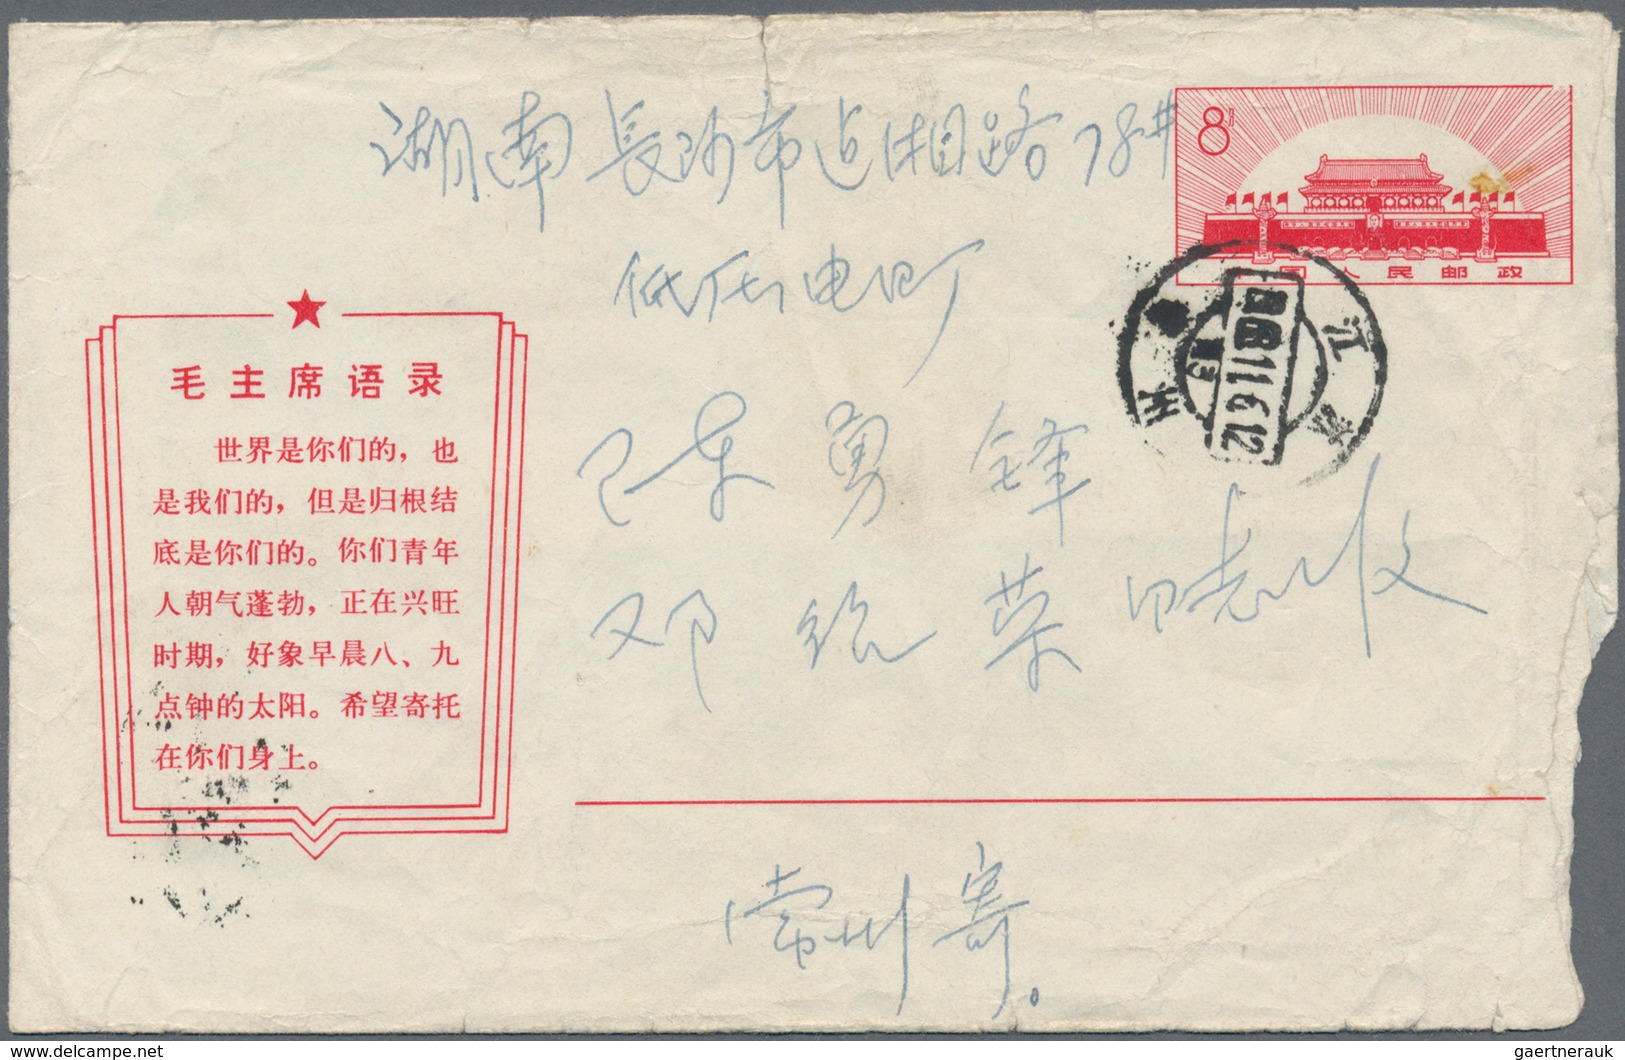 湖南長沙市迠湘路78#
8分
中国人民邮政
低压电四厂
江苏
常州
1968.11.6.12
毛主席语录
世界是你们的，也
是我们的，但是归根结
底是你们的。你们青年
人朝气蓬勃，正在兴旺
时期，好象早晨八、九
点钟的太阳。希望寄托
在你们身上。
陈勇锋
邓绍荣 同志收
常州寄。
delcampe.net
gaertnerauk